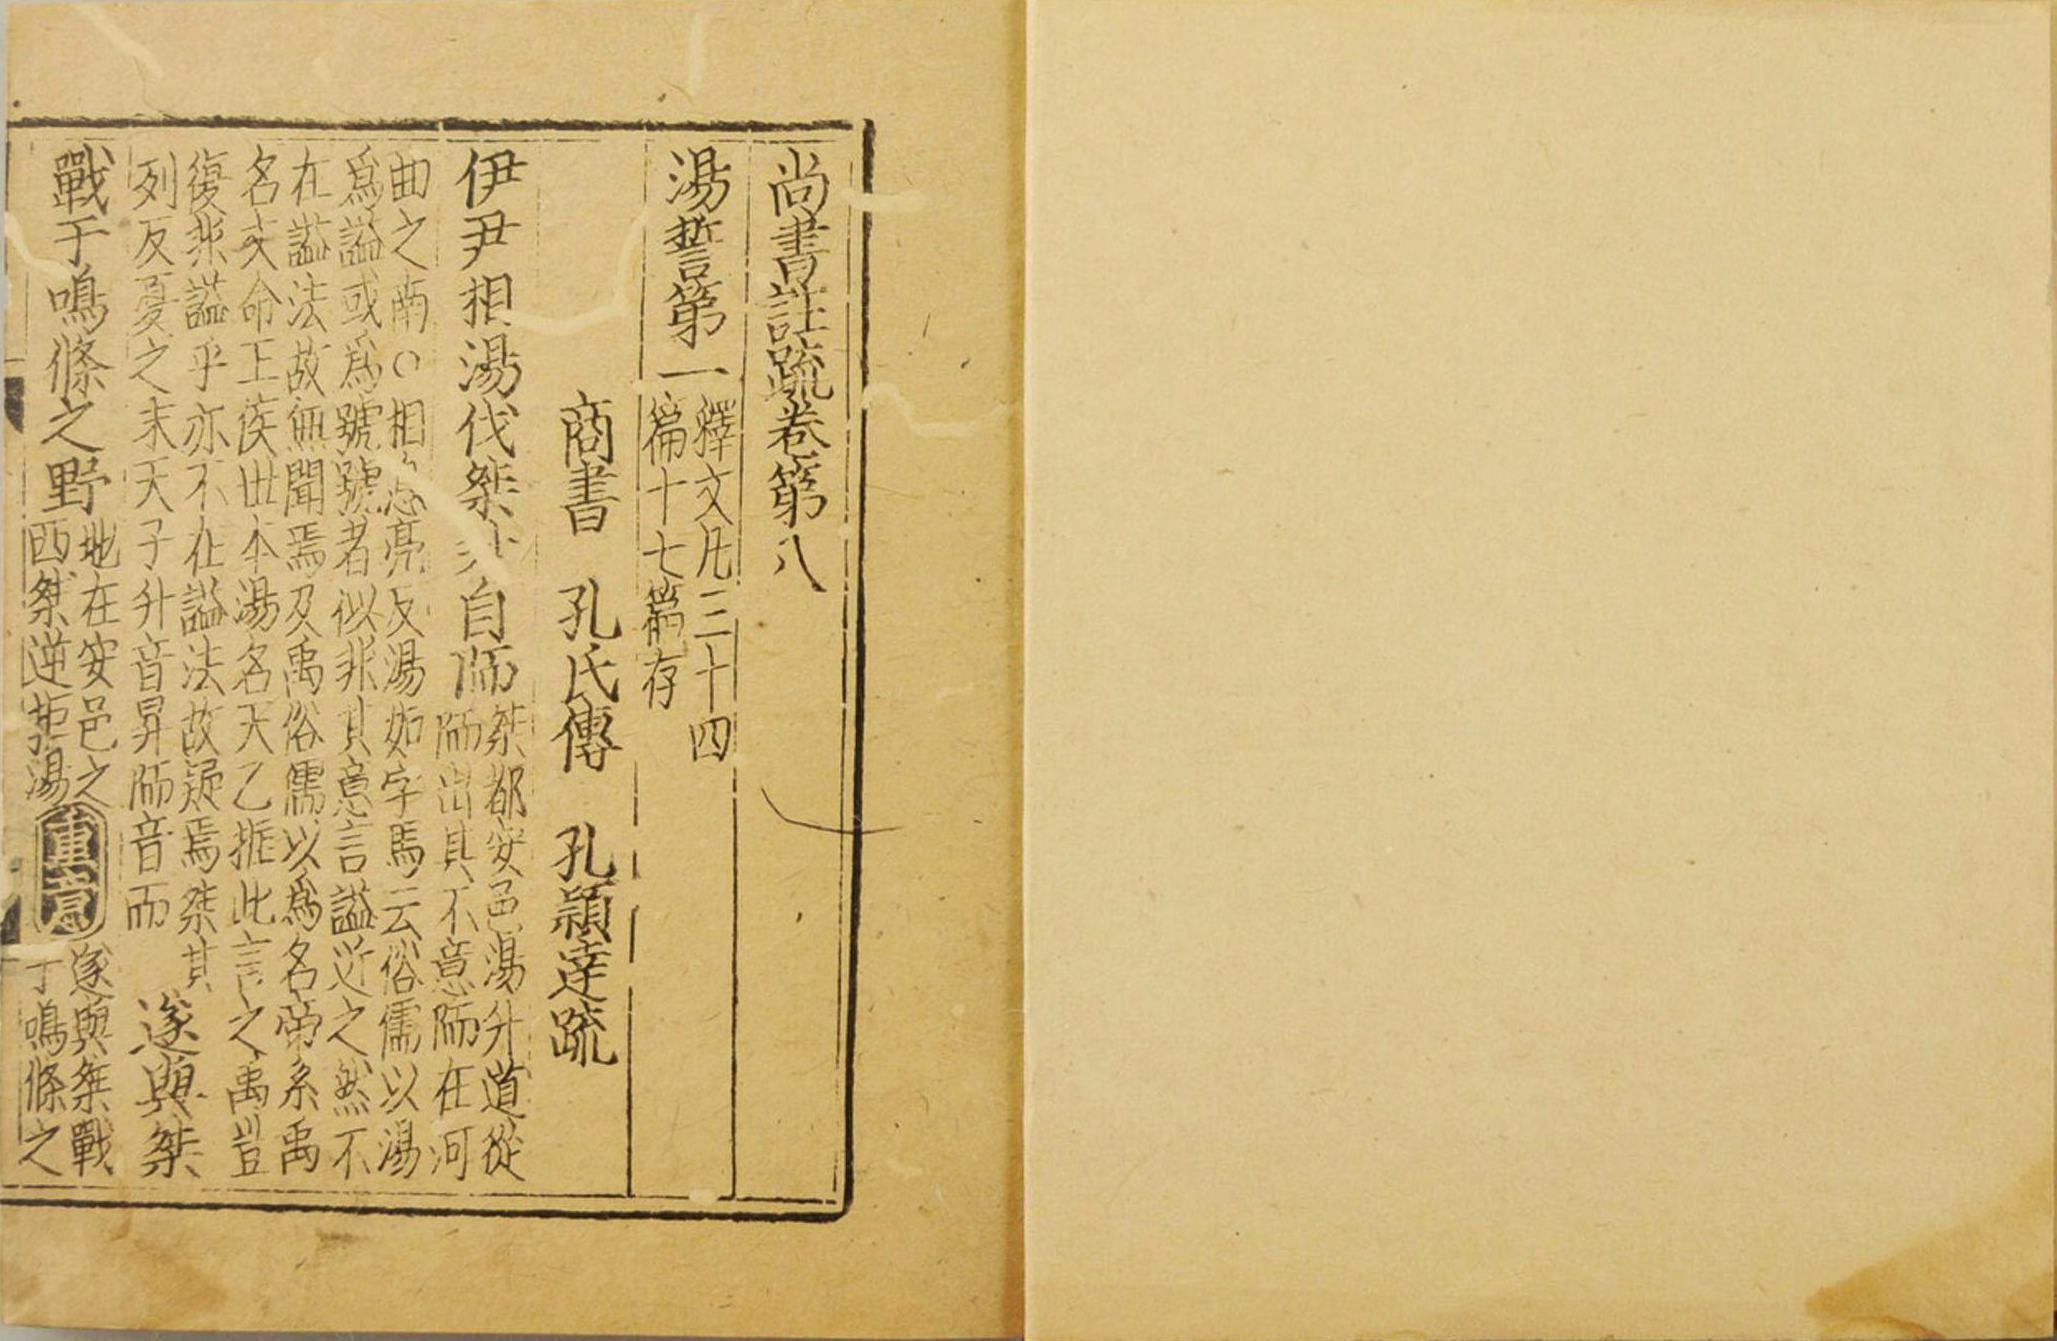 尚書註疏卷第八
湯誓第一
釋文凡三十四
篇十七篇存
商書　孔氏傳　孔穎達疏
伊尹相湯伐桀 自陑
桀都安邑湯升道從
陑出其不意陑在河
曲之南○相息亮反湯如字馬云俗儒以湯
為謚或為號號者似非其意言謚近之然不
在謚法故無聞焉及禹俗儒以為名帝系禹
名文命王侯世本湯名天乙推此言之禹豈
復非謚乎亦不在謚法故疑焉桀其
列反夏之末天子升音昇陑音而
遂與桀
戰于鳴條之野
地在安邑之
西桀逆拒湯
重言
遂與桀戰
丁鳴條之